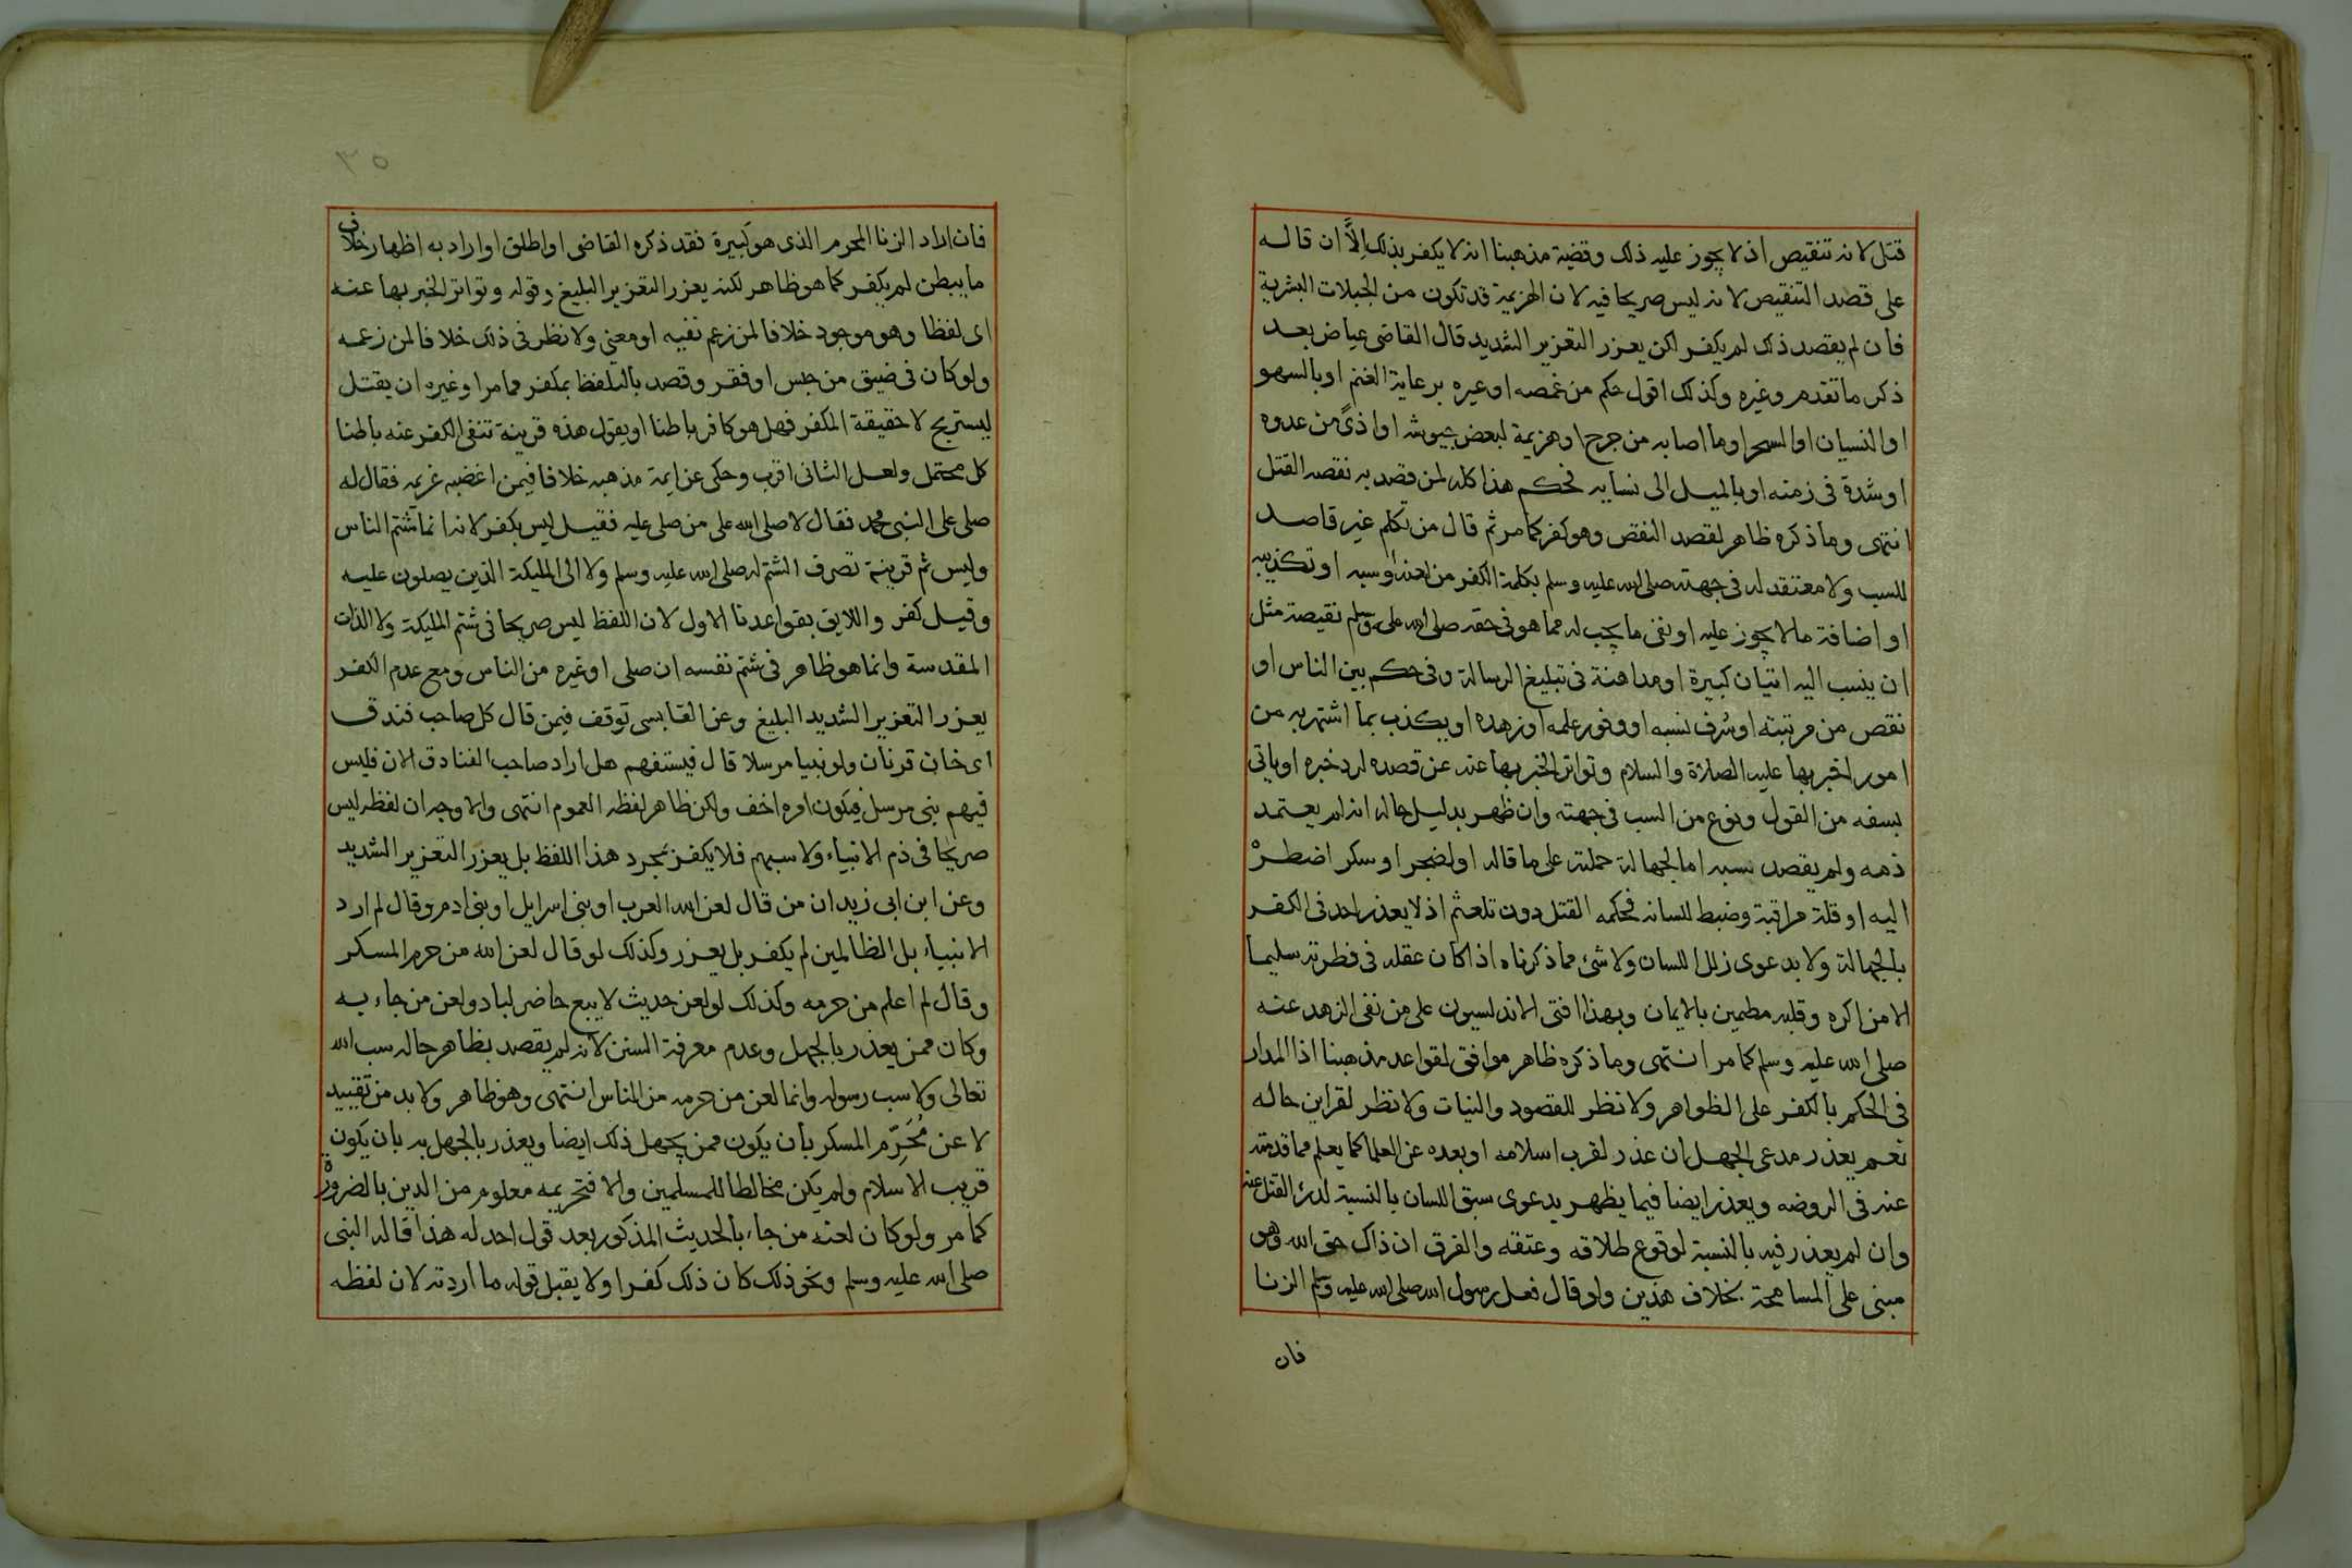 قتل لانه تنقيص اذ لا يجوز عليه ذلك وقضية مذهبنا انه لا يكفر بذلك إلَّا ان قاله
على قصد التنقيص لانه ليس صريحا فيه لان الهزيمة قد تكون من الجبلات البشرية
فان لم يقصد ذلك لم يكفر لكن يعزر التعزير الشديد قال القاضى عياض بعد
ذكر ما تقدم وغيره وكذلك اقول حكم من غمصه او عيره برعاية الغنم او بالسهو
او النسيان او السحر او ما اصابه من جرح او هزيمة لبعض جيوشه او اذىً من عدوه
او شدة فى زمنه او بالميل الى نسايه فحكم هذا كله لمن قصد به نقصه القتل
انتهى وما ذكره ظاهر لقصد النقص وهو كفر كما مر ثم قال من تكلم غير قاصد
للسب ولا معتقد له فى جهته صلى الله عليه وسلم بكلمة الكفر من لعنه او سبه او تكذيبه
او اضافة ما لا يجوز عليه او نفى ما يجب له مما هو فى حقه صلى الله عليه وسلم نقيصة مثل
ان ينسب اليه اتيان كبيرة او مداهنة فى تبليغ الرسالة وفى حكم بين الناس او
نقص من مرتبته او شرف نسبه او وفور علمه او زهده او يكذب بما اشتهر به من
امور اخبر بها عليه الصلاة والسلام وتواتر الخبر بها عنه عن قصده لرد خبره او ياتى
بسفه من القول ونوع من السب فى جهته وان ظهر بدليل حاله انه لم يعتمد
ذمه ولم يقصد سبه اما لجهالة حملته على ما قاله او لضجر او سكر اضطره
اليه او قلة مراقبة وضبط للسانه فحكمه القتل دون تلعثم اذ لا يعذر احد فى الكفر
بالجهالة ولا بدعوى زلل اللسان ولا شئ مما ذكرناه اذا كان عقله فى فطرته سليما
الا من اكره وقلبه مطمين بالايمان وبهذا افتى الاندلسيون على من نفى الزهد عنه
صلى الله عليه وسلم كما مر انتهى وما ذكره ظاهر موافق لقواعد مذهبنا اذ المدار
فى الحكم بالكفر على الظواهر ولا نظر للقصود والنيات ولا نظر لقراين حاله
نعم يعذر مدعى الجهل ان عذر لقرب اسلامه او بعده عن العلما كما يعلم مما قدمته
عنه فى الروضه ويعذر ايضا فيما يظهر بدعوى سبق اللسان بالنسبة لدرئ القتل عنه
وان لم يعذر فيه بالنسبة لوقوع طلاقه وعتقه والفرق ان ذاك حق الله وهو
مبنى على المسامحة بخلاف هذين ولو قال فعل رسول الله صلى الله عليه وسلم الزنا
فان
٣٥
فان اراد الزنا المحرم الذى هو كبيرة فقد ذكره القاضى او اطلق او اراد به اظهار خلاف
ما يبطن لم يكفر كما هو ظاهر لكنه يعزر التعزير البليغ وقوله وتواتر الخبر بها عنه
اى لفظا وهو موجود خلافا لمن زعم نفيه او معنى ولا نظر فى ذلك خلافا لمن زعمه
ولو كان فى ضيق من حبس او فقر وقصد بالتلفظ بمكفر مما مر او غيره ان يقتل
ليستريح لا حقيقة المكفر فهل هو كافر باطنا او يقول هذه قرينة تنفى الكفر عنه باطنا
كل محتمل ولعل الثانى اقرب وحكى عن ايمة مذهبه خلافا فيمن اغضبه غريمه فقال له
صلى على النبى محمد فقال لا صلى الله على من صلى عليه فقيل ليس بكفر لانه انما شتم الناس
وليس ثم قرينة تصرف الشتم له صلى الله عليه وسلم ولا الى المليكة الذين يصلون عليه
وقيل كفر واللايق بقواعدنا الاول لان اللفظ ليس صريحا فى شتم المليكة ولا الذات
المقدسة وانما هو ظاهر فى شتم نفسه ان صلى او غيره من الناس ومع عدم الكفر
يعزر التعزير الشديد البليغ وعن القابسى توقف فيمن قال كل صاحب فندق
اى خان قرنان ولو نبيا مرسلا قال فيستفهم هل اراد صاحب الفنادق الان فليس
فيهم نبى مرسل فيكون امره اخف ولكن ظاهر لفظه العموم انتهى والاوجه ان لفظه ليس
صريحا فى ذم الانبياء ولا سبهم فلا يكفر بمجرد هذا اللفظ بل يعزر التعزير الشديد
وعن ابن ابى زيد ان من قال لعن الله العرب او بنى اسرايل او بنى ادم وقال لم ارد
الانبياء بل الظالمين لم يكفر بل يعزر وكذلك لو قال لعن الله من حرم المسكر
وقال لم اعلم من حرمه وكذلك لو لعن حديث لا يبع حاضر لباد ولعن من جاء به
وكان ممن يعذر بالجهل وعدم معرفة السنن لانه لم يقصد بظاهر حاله سب الله
تعالى ولا سب رسوله وانما لعن من حرمه من الناس انتهى وهو ظاهر ولا بد من تقييد
لاعن مُحَرِّم المسكر بان يكون ممن يجهل ذلك ايضا ويعذر بالجهل به بان يكون
قريب الاسلام ولم يكن مخالطا للمسلمين والا فتحريمه معلوم من الدين بالضرورة
كما مر ولو كان لعنه من جاء بالحديث المذكور بعد قول احد له هذا قاله النبى
صلى الله عليه وسلم ونحو ذلك كان ذلك كفرا ولا يقبل قوله ما اردته لان لفظه